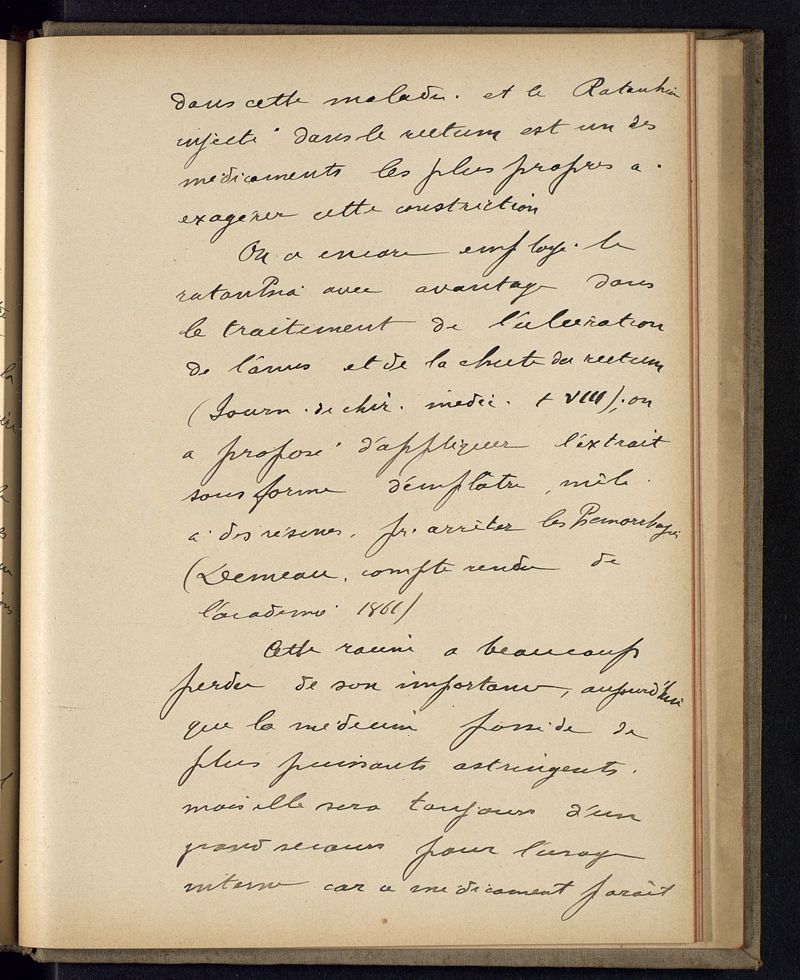 dans cette maladie. et le Ratanhia
injecté dans le rectum est un des
médicaments les plus propres a
exagérer cette constriction
On a encore employé le
ratanhia avec avantage dans
le traitement de l'ulcération
de l'anus et de la chute du rectum
(Journ. de chir. médic. t VIII); on
a proposé d'appliquer l'extrait
sous forme d'emplâtre, mêlé
a des résines, pr. arrêter les hemorrhagies
(Demeau, compte rendu de
l'académie 1861)
Cette racine a beaucoup
perdu de son importance, aujourd'hui
que la médecine possède de
plus puissants astringents.
mais elle sera toujours d'un
grand secours pour l'usage
interne car ce médicament parait